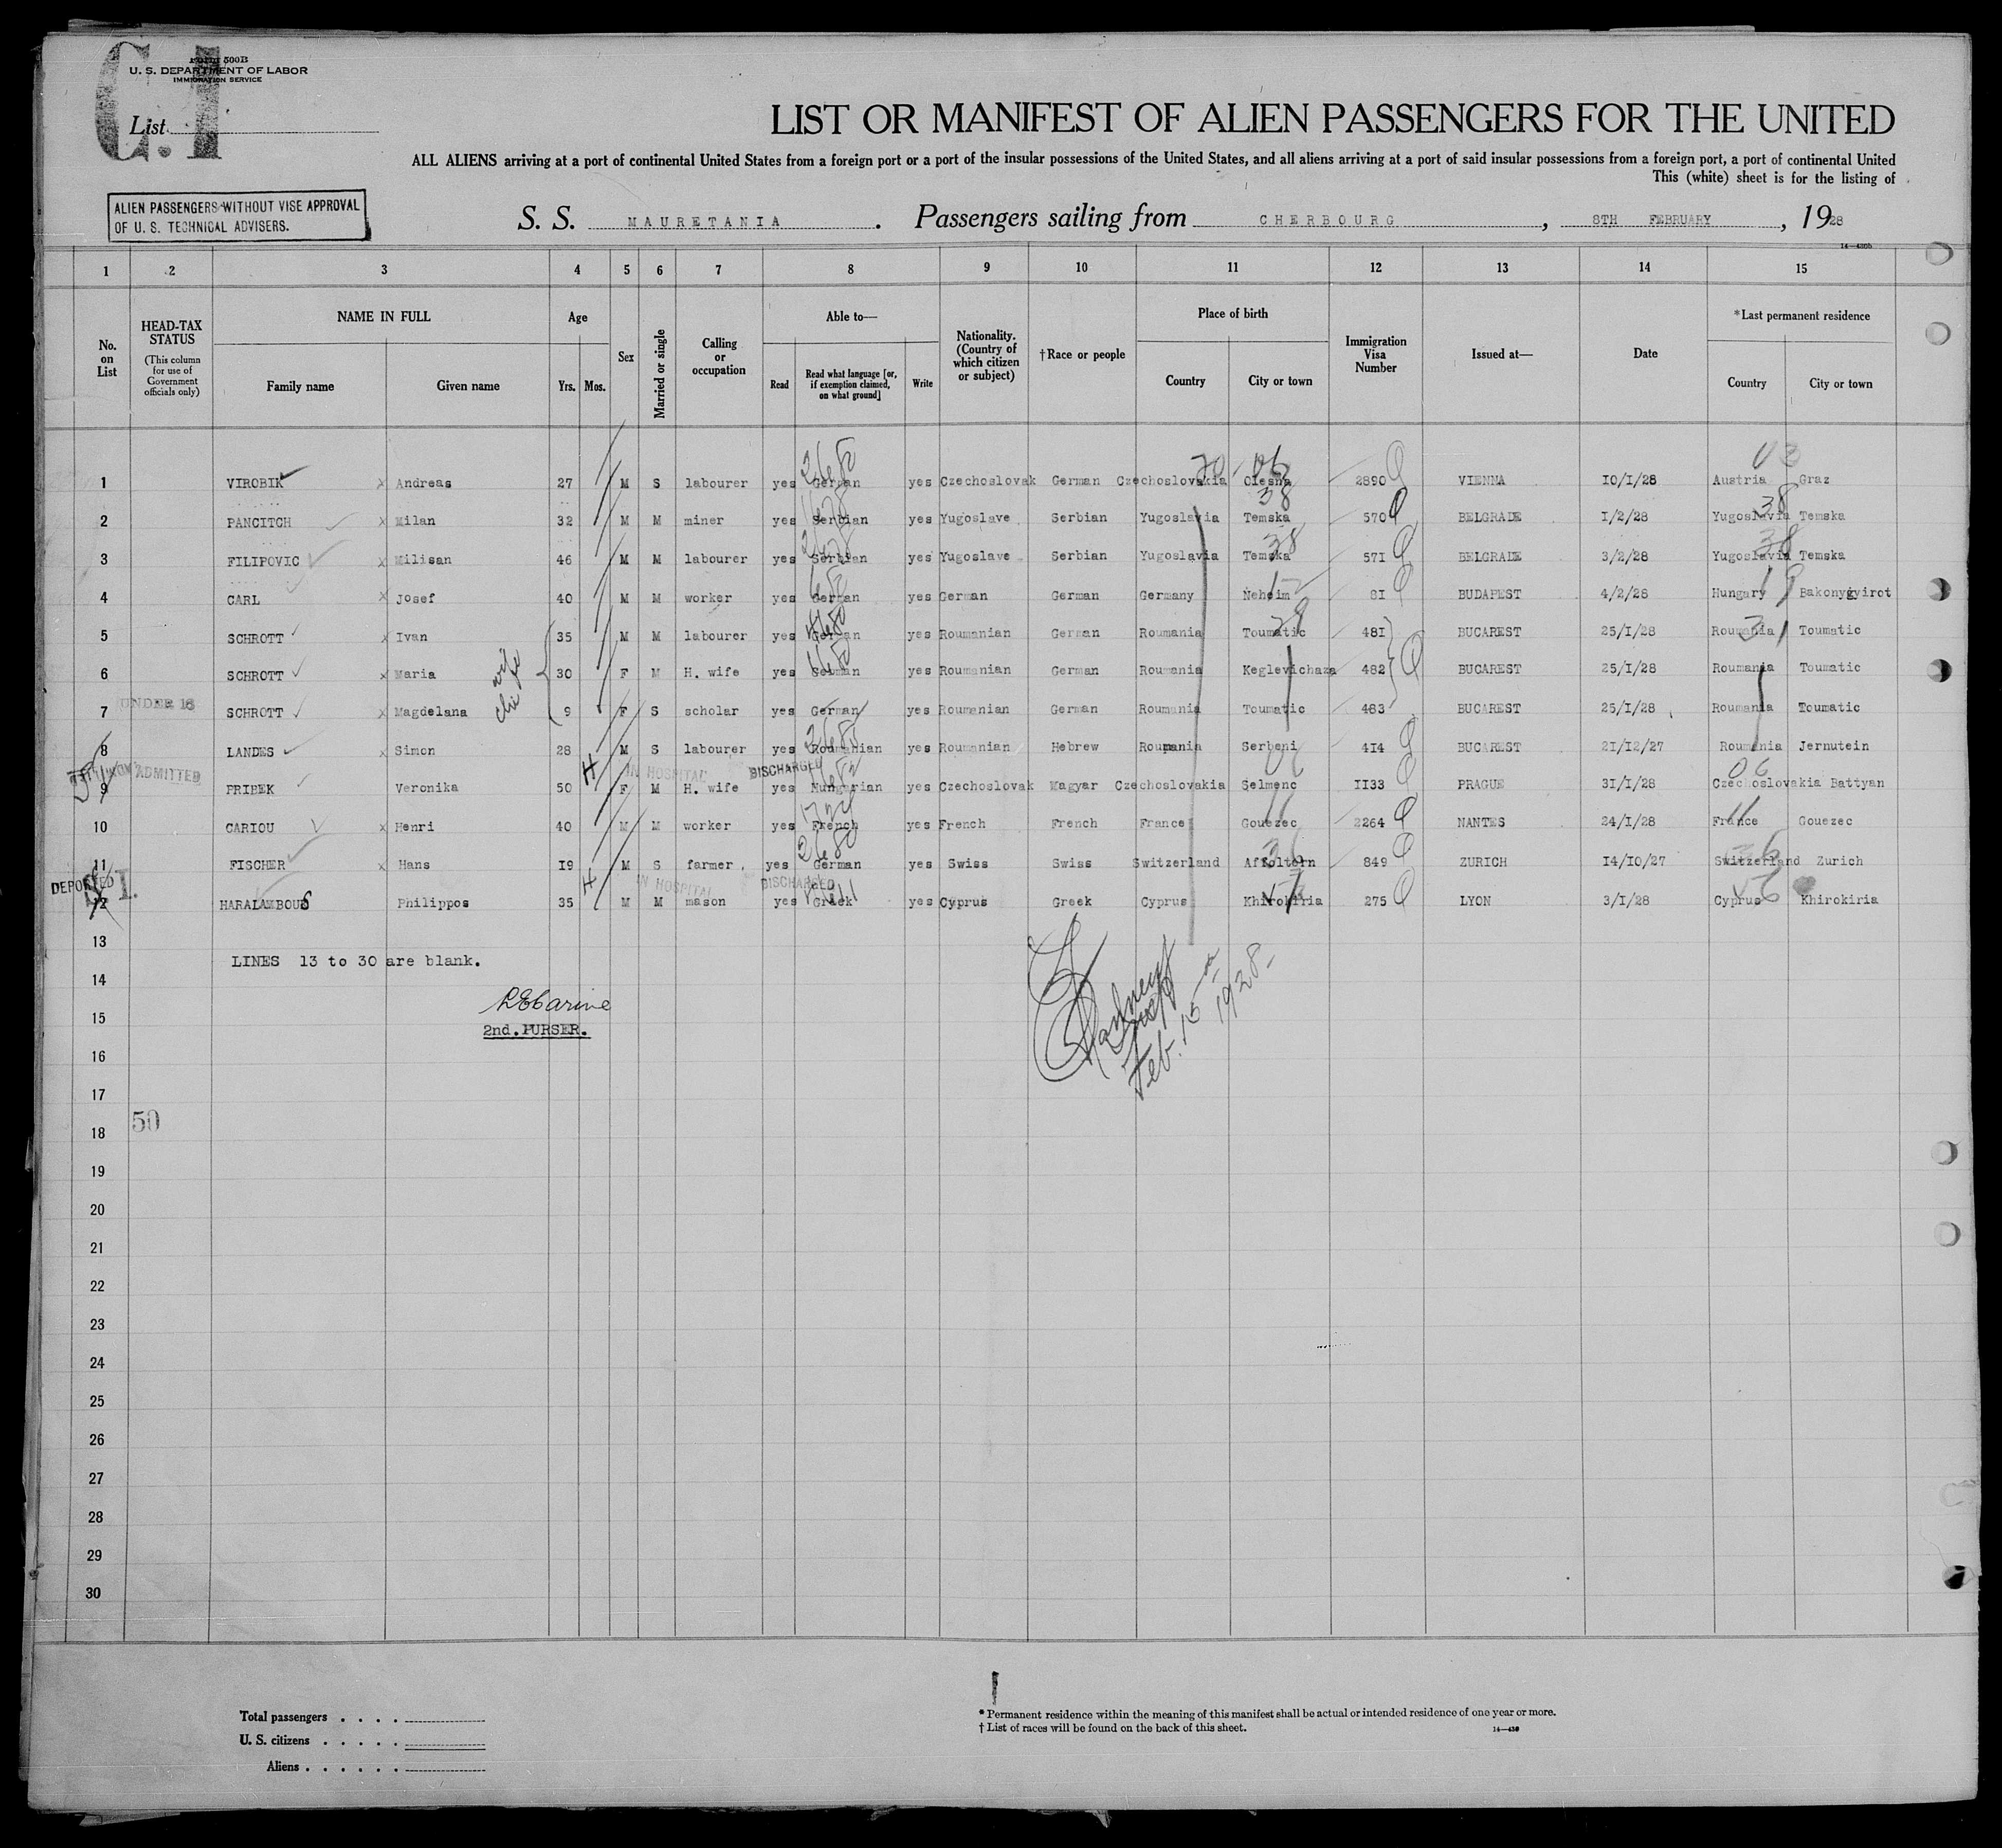 G.1
Form 500B
U. S. DEPARTMENT OF LABOR
IMMIGRATION SERVICE
List
LIST OR MANIFEST OF ALIEN PASSENGERS FOR THE UNITED
ALL ALIENS arriving at a port of continental United States from a foreign port or a port of the insular possessions of the United States, and all aliens arriving at a port of said insular possessions from a foreign port, a port of continental United
This (white) sheet is for the listing of
ALIEN PASSENGERS WITHOUT VISE APPROVAL
OF U. S. TECHNICAL ADVISERS.
S. S. MAURETANIA. Passengers sailing from CHERBOURG, 8TH FEBRUARY, 1928
14—430b
1 2 3 4 5 6 7 8 9 10 11 12 13 14 15
No. on List
HEAD-TAX STATUS (This column for use of Government officials only)
NAME IN FULL Family name Given name
Age Yrs. Mos.
Sex
Married or single
Calling or occupation
Able to— Read Read what language [or, if exemption claimed, on what ground] Write
Nationality. (Country of which citizen or subject)
†Race or people
Place of birth Country City or town
Immigration Visa Number
Issued at—
Date
*Last permanent residence Country City or town
1 VIROBIK x Andreas 27 M S labourer yes German yes Czechoslovak German Czechoslovakia Olesna 2890 VIENNA 10/1/28 Austria Graz
2 PANCITCH x Milan 32 M M miner yes Serbian yes Yugoslave Serbian Yugoslavia Temska 570 BELGRADE 1/2/28 Yugoslavia Temska
3 FILIPOVIC x Milisan 46 M M labourer yes Serbian yes Yugoslave Serbian Yugoslavia Temska 571 BELGRADE 3/2/28 Yugoslavia Temska
4 CARL x Josef 40 M M worker yes German yes German German Germany Neheim 81 BUDAPEST 4/2/28 Hungary Bakonygyirot
5 SCHROTT x Ivan 35 M M labourer yes German yes Roumanian German Roumania Toumatic 481 BUCAREST 25/1/28 Roumania Toumatic
6 SCHROTT x Maria wife 30 F M H. wife yes German yes Roumanian German Roumania Keglevichaza 482 BUCAREST 25/1/28 Roumania Toumatic
UNDER 16
7 SCHROTT x Magdelana 9 F S scholar yes German yes Roumanian German Roumania Toumatic 483 BUCAREST 25/1/28 Roumania Toumatic
8 LANDES x Simon 28 M S labourer yes Roumanian yes Roumanian Hebrew Roumania Serbeni 414 BUCAREST 21/12/27 Roumania Jernutein
ADMITTED IN HOSPITAL DISCHARGED
9 PRIBEK Veronika 50 F M H. wife yes Hungarian yes Czechoslovak Magyar Czechoslovakia Selmenc 1133 PRAGUE 31/1/28 Czechoslovakia Battyan
10 CARIOU x Henri 40 M M worker yes French yes French French France Gouezec 2264 NANTES 24/1/28 France Gouezec
11 FISCHER x Hans 19 M S farmer yes German yes Swiss Swiss Switzerland Affoltern 849 ZURICH 14/10/27 Switzerland Zurich
DEPORTED IN HOSPITAL DISCHARGED
12 HARALAMBOUS Philippos 35 M M mason yes Greek yes Cyprus Greek Cyprus Khirokiria 275 LYON 3/1/28 Cyprus Khirokiria
13
LINES 13 to 30 are blank.
14
15
2nd. PURSER.
Feb. 15 1928
16
17
50
18
19
20
21
22
23
24
25
26
27
28
29
30
Total passengers
U. S. citizens
Aliens
* Permanent residence within the meaning of this manifest shall be actual or intended residence of one year or more.
† List of races will be found on the back of this sheet.
14—430